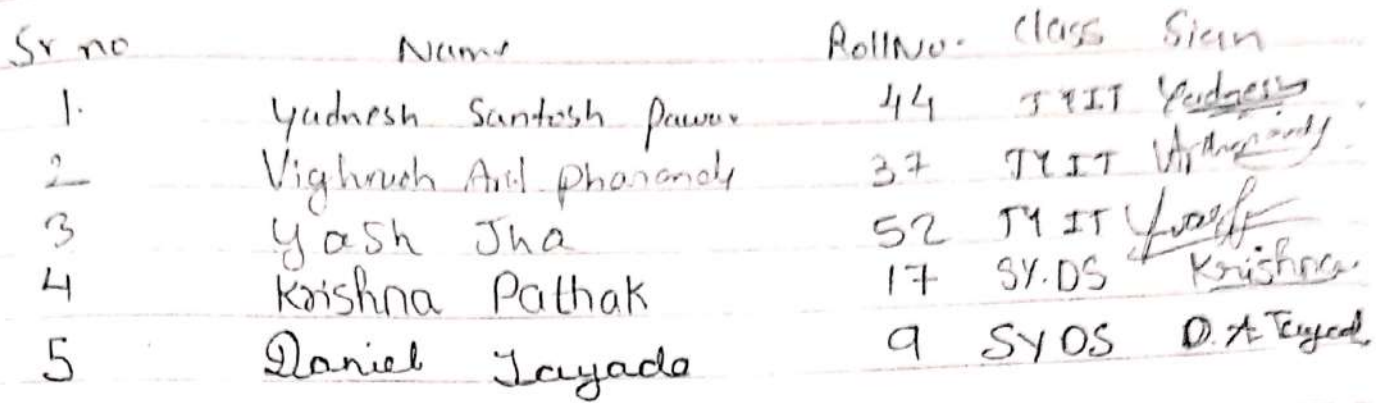 Sr no Name RollNo. Class Sign
1. Yadnesh Santosh Pawar 44 TYIT Yadnesh
2 Anil 37 TYIT
3 Yash Jha 52 TYIT
4 Krishna Pathak 17 SY.DS Krishna
5 Daniel Tayade 9 SYDS